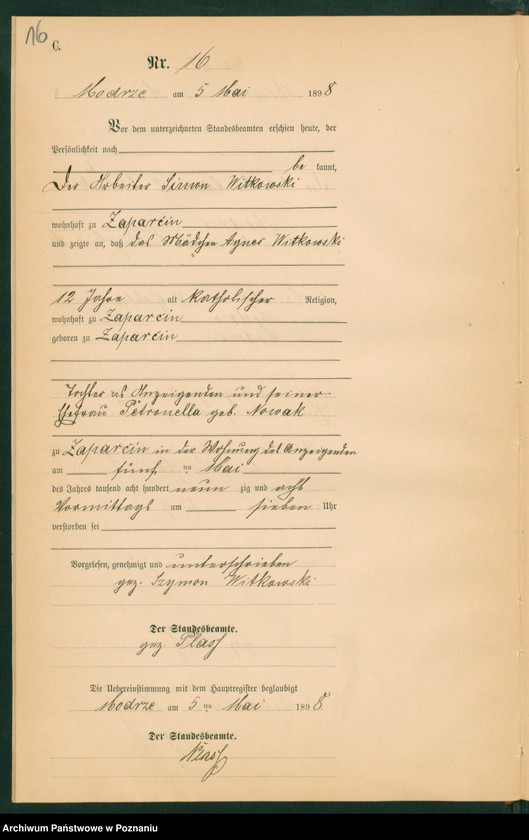 16
C.
Nr. 16
Modrze am 5 Mai 1898
Vor dem unterzeichneten Standesbeamten erschien heute, der
Persönlichkeit nach
be kannt,
Der Arbeiter Simon Witkowski
wohnhaft zu Zaparcin
und zeigte an, daß das Mädchen Agnes Witkowski
12 Jahre alt katholischer Religion,
wohnhaft zu Zaparcin
geboren zu Zaparcin
Tochter des Anzeigenden und seiner
Ehefrau Petronella geb. Nowak
zu Zaparcin in der Wohnung des Anzeigenden
am fünf ten Mai
des Jahres tausend acht hundert neun zig und acht
Vormittags um sieben Uhr
verstorben sei
Vorgelesen, genehmigt und unterschrieben
gez. Szymon Witkowski
Der Standesbeamte.
gez.
Die Uebereinstimmung mit dem Hauptregister beglaubigt
Modrze am 5 ten Mai 1898
Der Standesbeamte.
Archiwum Państwowe w Poznaniu